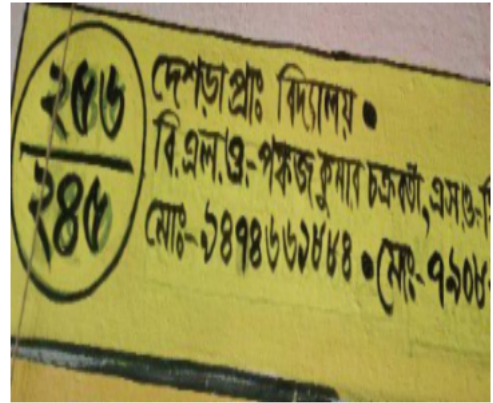 ২৫৬
২৪৫
দেশড়া প্রাঃ বিদ্যালয় •
বি.এল.ও.- পঙ্কজ কুমার চক্রবর্তী, এস.ও.-
মোঃ- ৯৪৭৪৬৬১৮৮৪ • মোঃ- ৭৯০৮